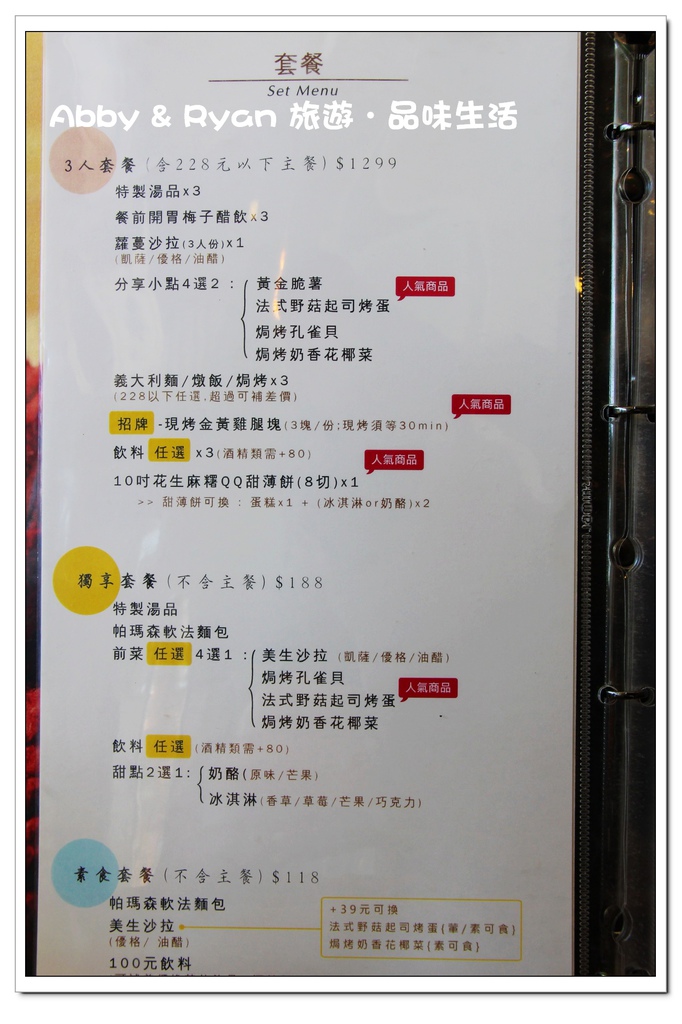 套餐
Set Menu
Abby & Ryan 旅遊·品味生活
3人套餐(含228元以下主餐)$1299
特製湯品x3
餐前開胃梅子醋飲x3
蘿蔓沙拉(3人份)x1
(凱薩/優格/油醋)
分享小點4選2：
黃金脆薯 人氣商品
法式野菇起司烤蛋
焗烤孔雀貝
焗烤奶香花椰菜
義大利麵/燉飯/焗烤x3
(228以下任選,超過可補差價)
人氣商品
招牌-現烤金黃雞腿塊(3塊/份;現烤須等30min)
飲料 任選 x3(酒精類需+80)
人氣商品
10吋花生麻糬QQ甜薄餅(8切)x1
>> 甜薄餅可換：蛋糕x1 + (冰淇淋or奶酪)x2
獨享套餐(不含主餐)$188
特製湯品
帕瑪森軟法麵包
前菜 任選 4選1：美生沙拉 (凱薩/優格/油醋)
焗烤孔雀貝
法式野菇起司烤蛋 人氣商品
焗烤奶香花椰菜
飲料 任選 (酒精類需+80)
甜點2選1：奶酪(原味/芒果)
冰淇淋(香草/草莓/芒果/巧克力)
素食套餐(不含主餐)$118
帕瑪森軟法麵包
美生沙拉
(優格/ 油醋)
100元飲料
+39元可換
法式野菇起司烤蛋(葷/素可食)
焗烤奶香花椰菜(素可食)